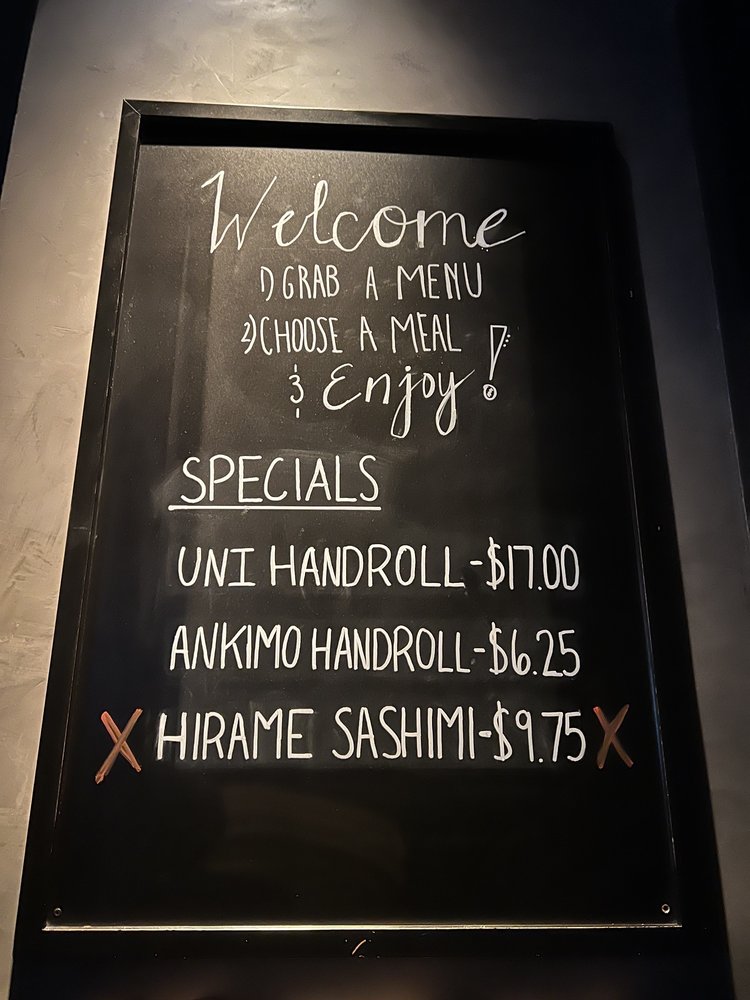 Welcome
1) GRAB A MENU
2) CHOOSE A MEAL
& Enjoy!
SPECIALS
UNI HANDROLL-$17.00
ANKIMO HANDROLL-$6.25
X HIRAME SASHIMI-$9.75 X